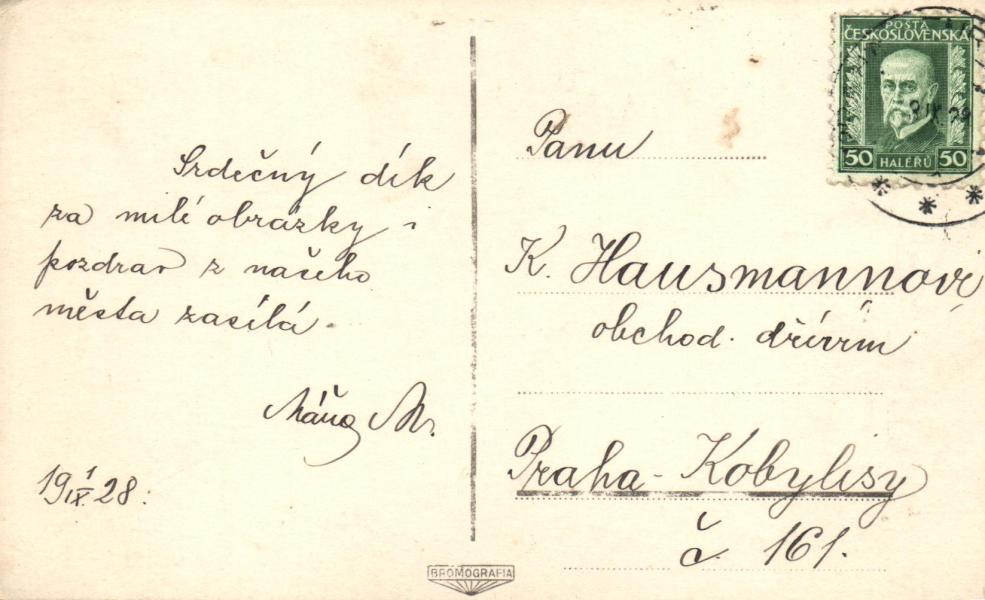 Srdečný dík
za milé obrázky i
pozdrav z našeho
města zasílá
19 1/IX 28.
Panu
K. Hausmannovi
obchod. dřívím
Praha-Kobylisy
č. 161.
POŠTA
ČESKOSLOVENSKÁ
50 HALÉŘŮ 50
BROMOGRAFIA